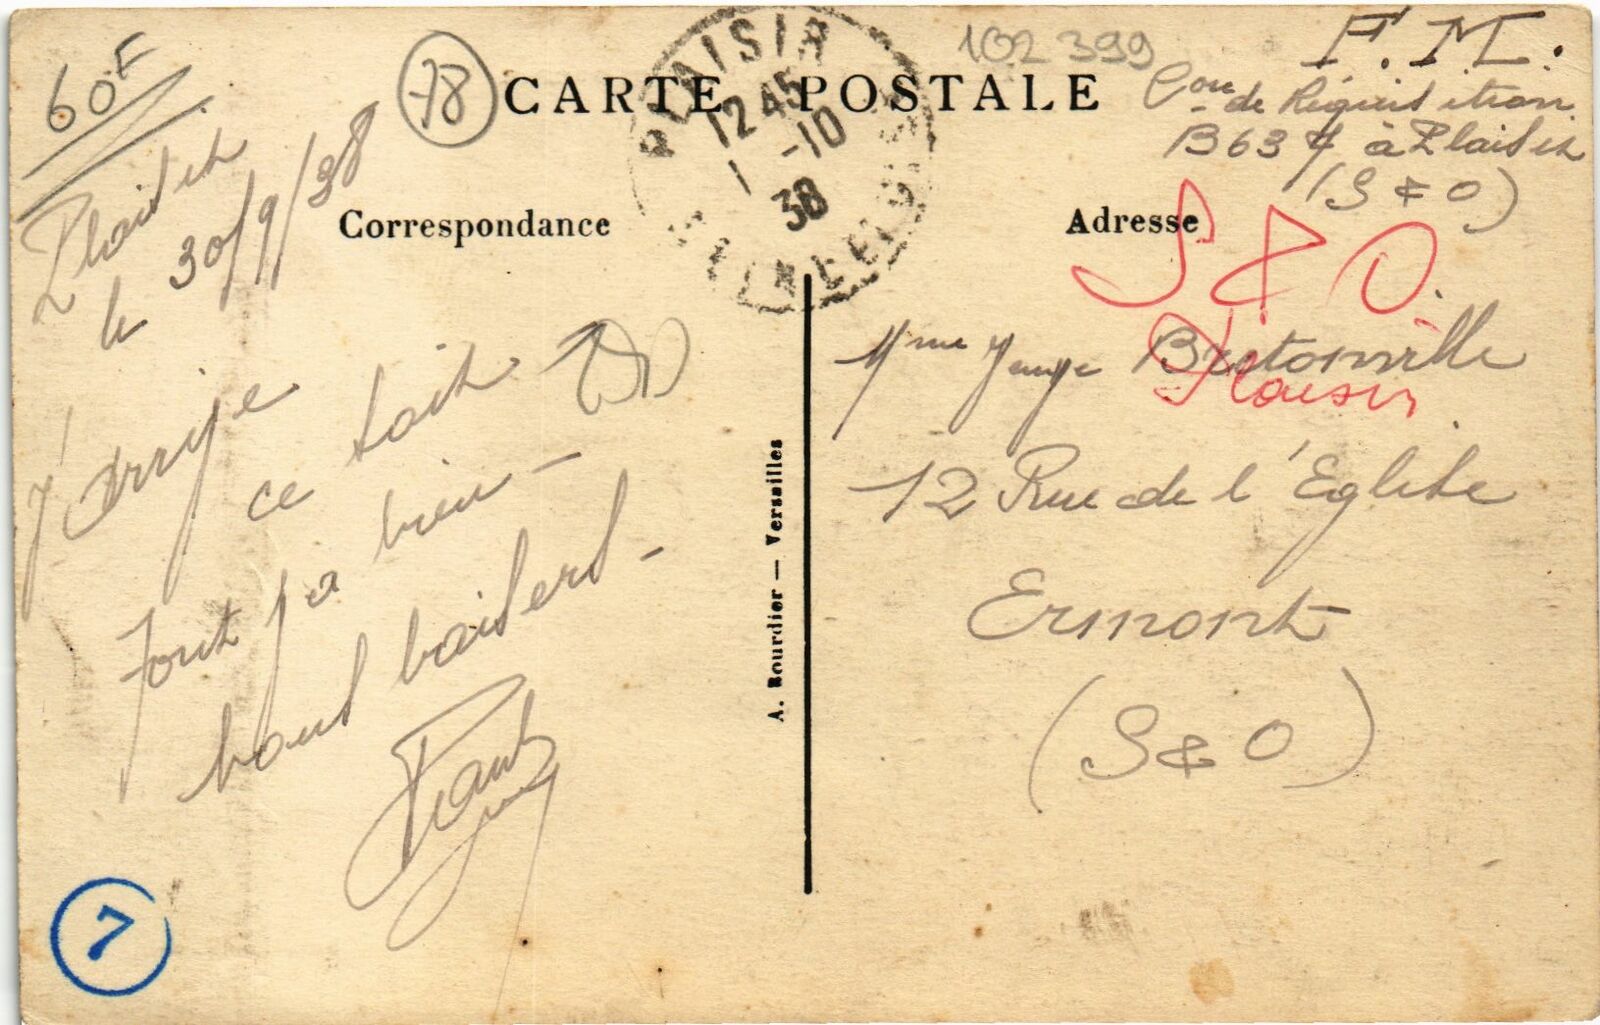 60F
78
CARTE POSTALE
102 399
PLAISIR
12 45
1 -10
38
F.M.
Con de Réquisition
B637 à Plaisir
(S & O)
Correspondance
Adresse
S & O.
Plaisir
Plaisir
le 30/9/38
J'arrive
ce soir
Tout va bien -
bons baisers -
Mme Bretonville
12 Rue de l'Eglise
Ermont
(S & O)
A. Bourdier — Versailles
7